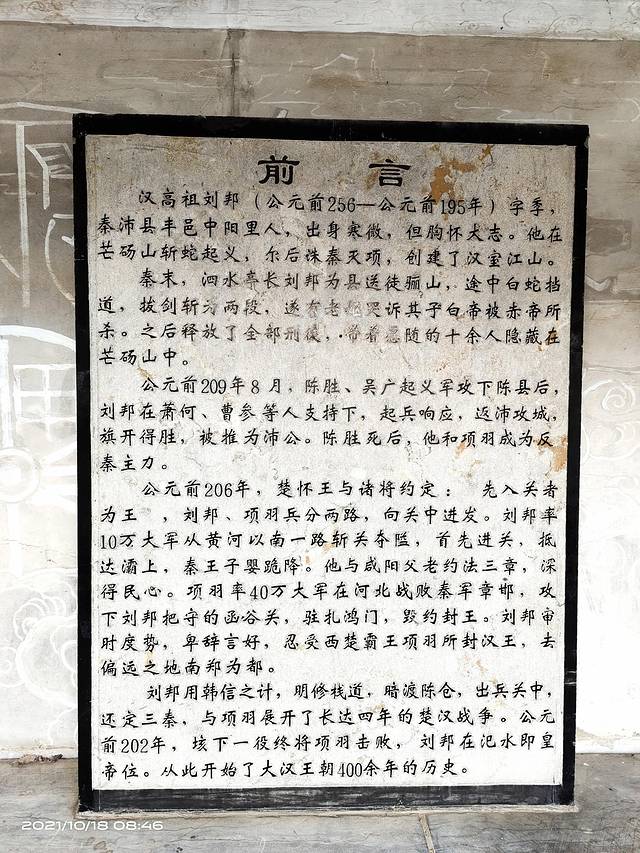 前言
汉高祖刘邦（公元前256—公元前195年）字季，
秦沛县丰邑中阳里人，出身寒微，但胸怀大志。他在
芒砀山斩蛇起义，尔后诛秦灭项，创建了汉室江山。
秦末，泗水亭长刘邦为县送徒骊山，途中白蛇挡
道，拔剑斩为两段，遂有老妪哭诉其子白帝被赤帝所
杀。之后释放了全部刑徒，带着愿随的十余人隐藏在
芒砀山中。
公元前209年8月，陈胜、吴广起义军攻下陈县后，
刘邦在萧何、曹参等人支持下，起兵响应，返沛攻城，
旗开得胜，被推为沛公。陈胜死后，他和项羽成为反
秦主力。
公元前206年，楚怀王与诸将约定： 先入关者
为王 ，刘邦、项羽兵分两路，向关中进发。刘邦率
10万大军从黄河以南一路斩关夺隘，首先进关，抵
达灞上，秦王子婴跪降。他与咸阳父老约法三章，深
得民心。项羽率40万大军在河北战败秦军章邯，攻
下刘邦把守的函谷关，驻扎鸿门，毁约封王。刘邦审
时度势，卑辞言好，忍受西楚霸王项羽所封汉王，去
偏远之地南郑为都。
刘邦用韩信之计，明修栈道，暗渡陈仓，出兵关中，
还定三秦，与项羽展开了长达四年的楚汉战争。公元
前202年，垓下一役终将项羽击败，刘邦在汜水即皇
帝位。从此开始了大汉王朝400余年的历史。
2021/10/18 08:46